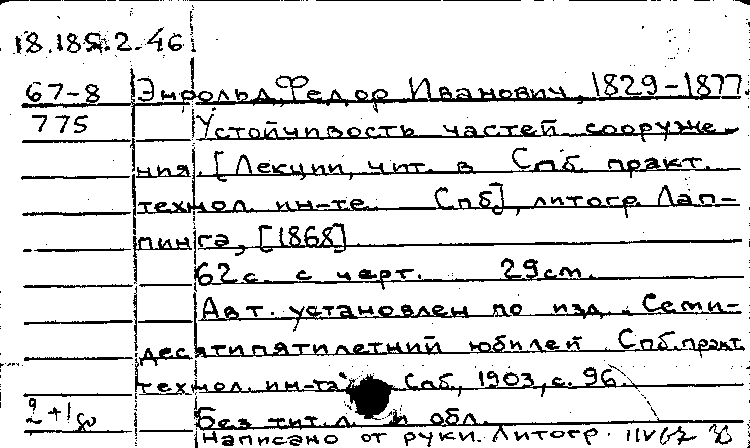 18.185.2.46
67-8 Энрольд, Федор Иванович, 1829-1877.
775 Устойчивость частей сооруже-
ния. [Лекции, чит. в Спб. практ.
технол. ин-те. Спб], литогр. Лап-
пинга, [1868]
62 с. с черт. 29 см.
Авт. установлен по изд.: Семи-
десятипятилетний юбилей Спб. практ.
технол. ин-та. Спб., 1903, с. 96.
Без тит. л. и обл.
Написано от руки. Литогр.